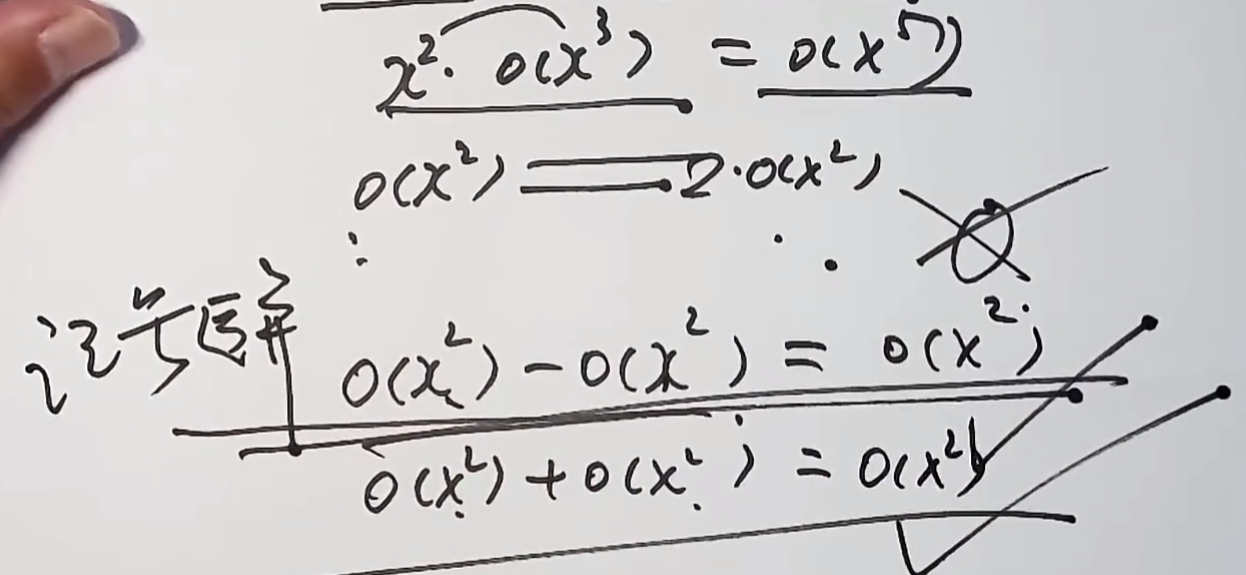 x²· o(x³) = o(x⁵)
o(x²) = 2·o(x²)
o(x²) - o(x²) = o(x²)
o(x²) + o(x²) = o(x²)